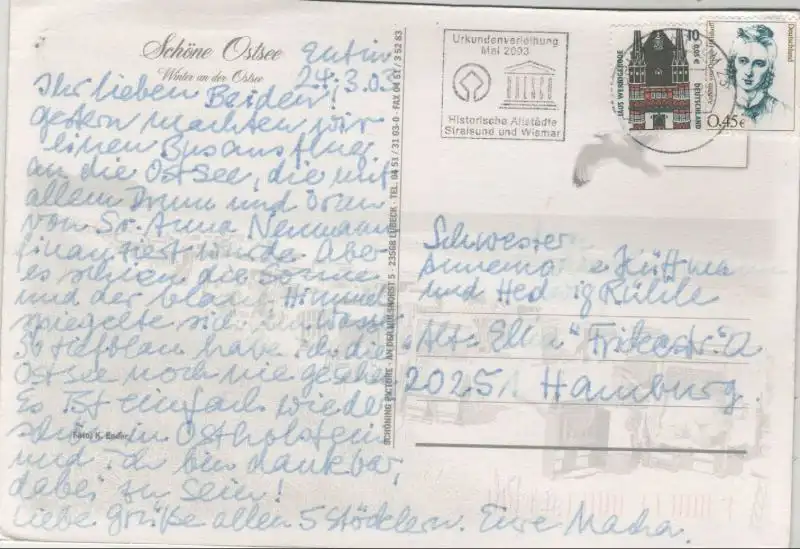 Schöne Ostsee
Winter an der Ostsee
Eutin
24.3.03
Ihr lieben Beiden!
gestern machten wir
einen Busausflug
an die Ostsee, die mit
allem Drum und Dran
von Sr. Anna Neumann
finanziert wurde. Aber
es schien die Sonne
und der blaue Himmel
spiegelte sich im Wasser
So tiefblau habe ich die
Ostsee noch nie gesehen
Es ist einfach wieder
schön in Ostholstein
und ich bin dankbar,
dabei zu sein!
Liebe Grüße allen 5 Stöcklern. Eure
Foto: K. Ender
SCHÖNING PICTURE · AN DER HÜLSHORST 5 · 23568 LÜBECK · TEL. 04 51 / 31 03-0 · FAX 04 51 / 3 52 83
Urkundenverleihung
Mai 2003
UNESCO
Historische Altstädte
Stralsund und Wismar
10
0,05 €
HAUS WERNIGERODE
DEUTSCHLAND
Deutschland
0,45€
Schwestern
Annemarie
und Hedwig Rühle
"Alt. " Frickestr.
20251 Hamburg